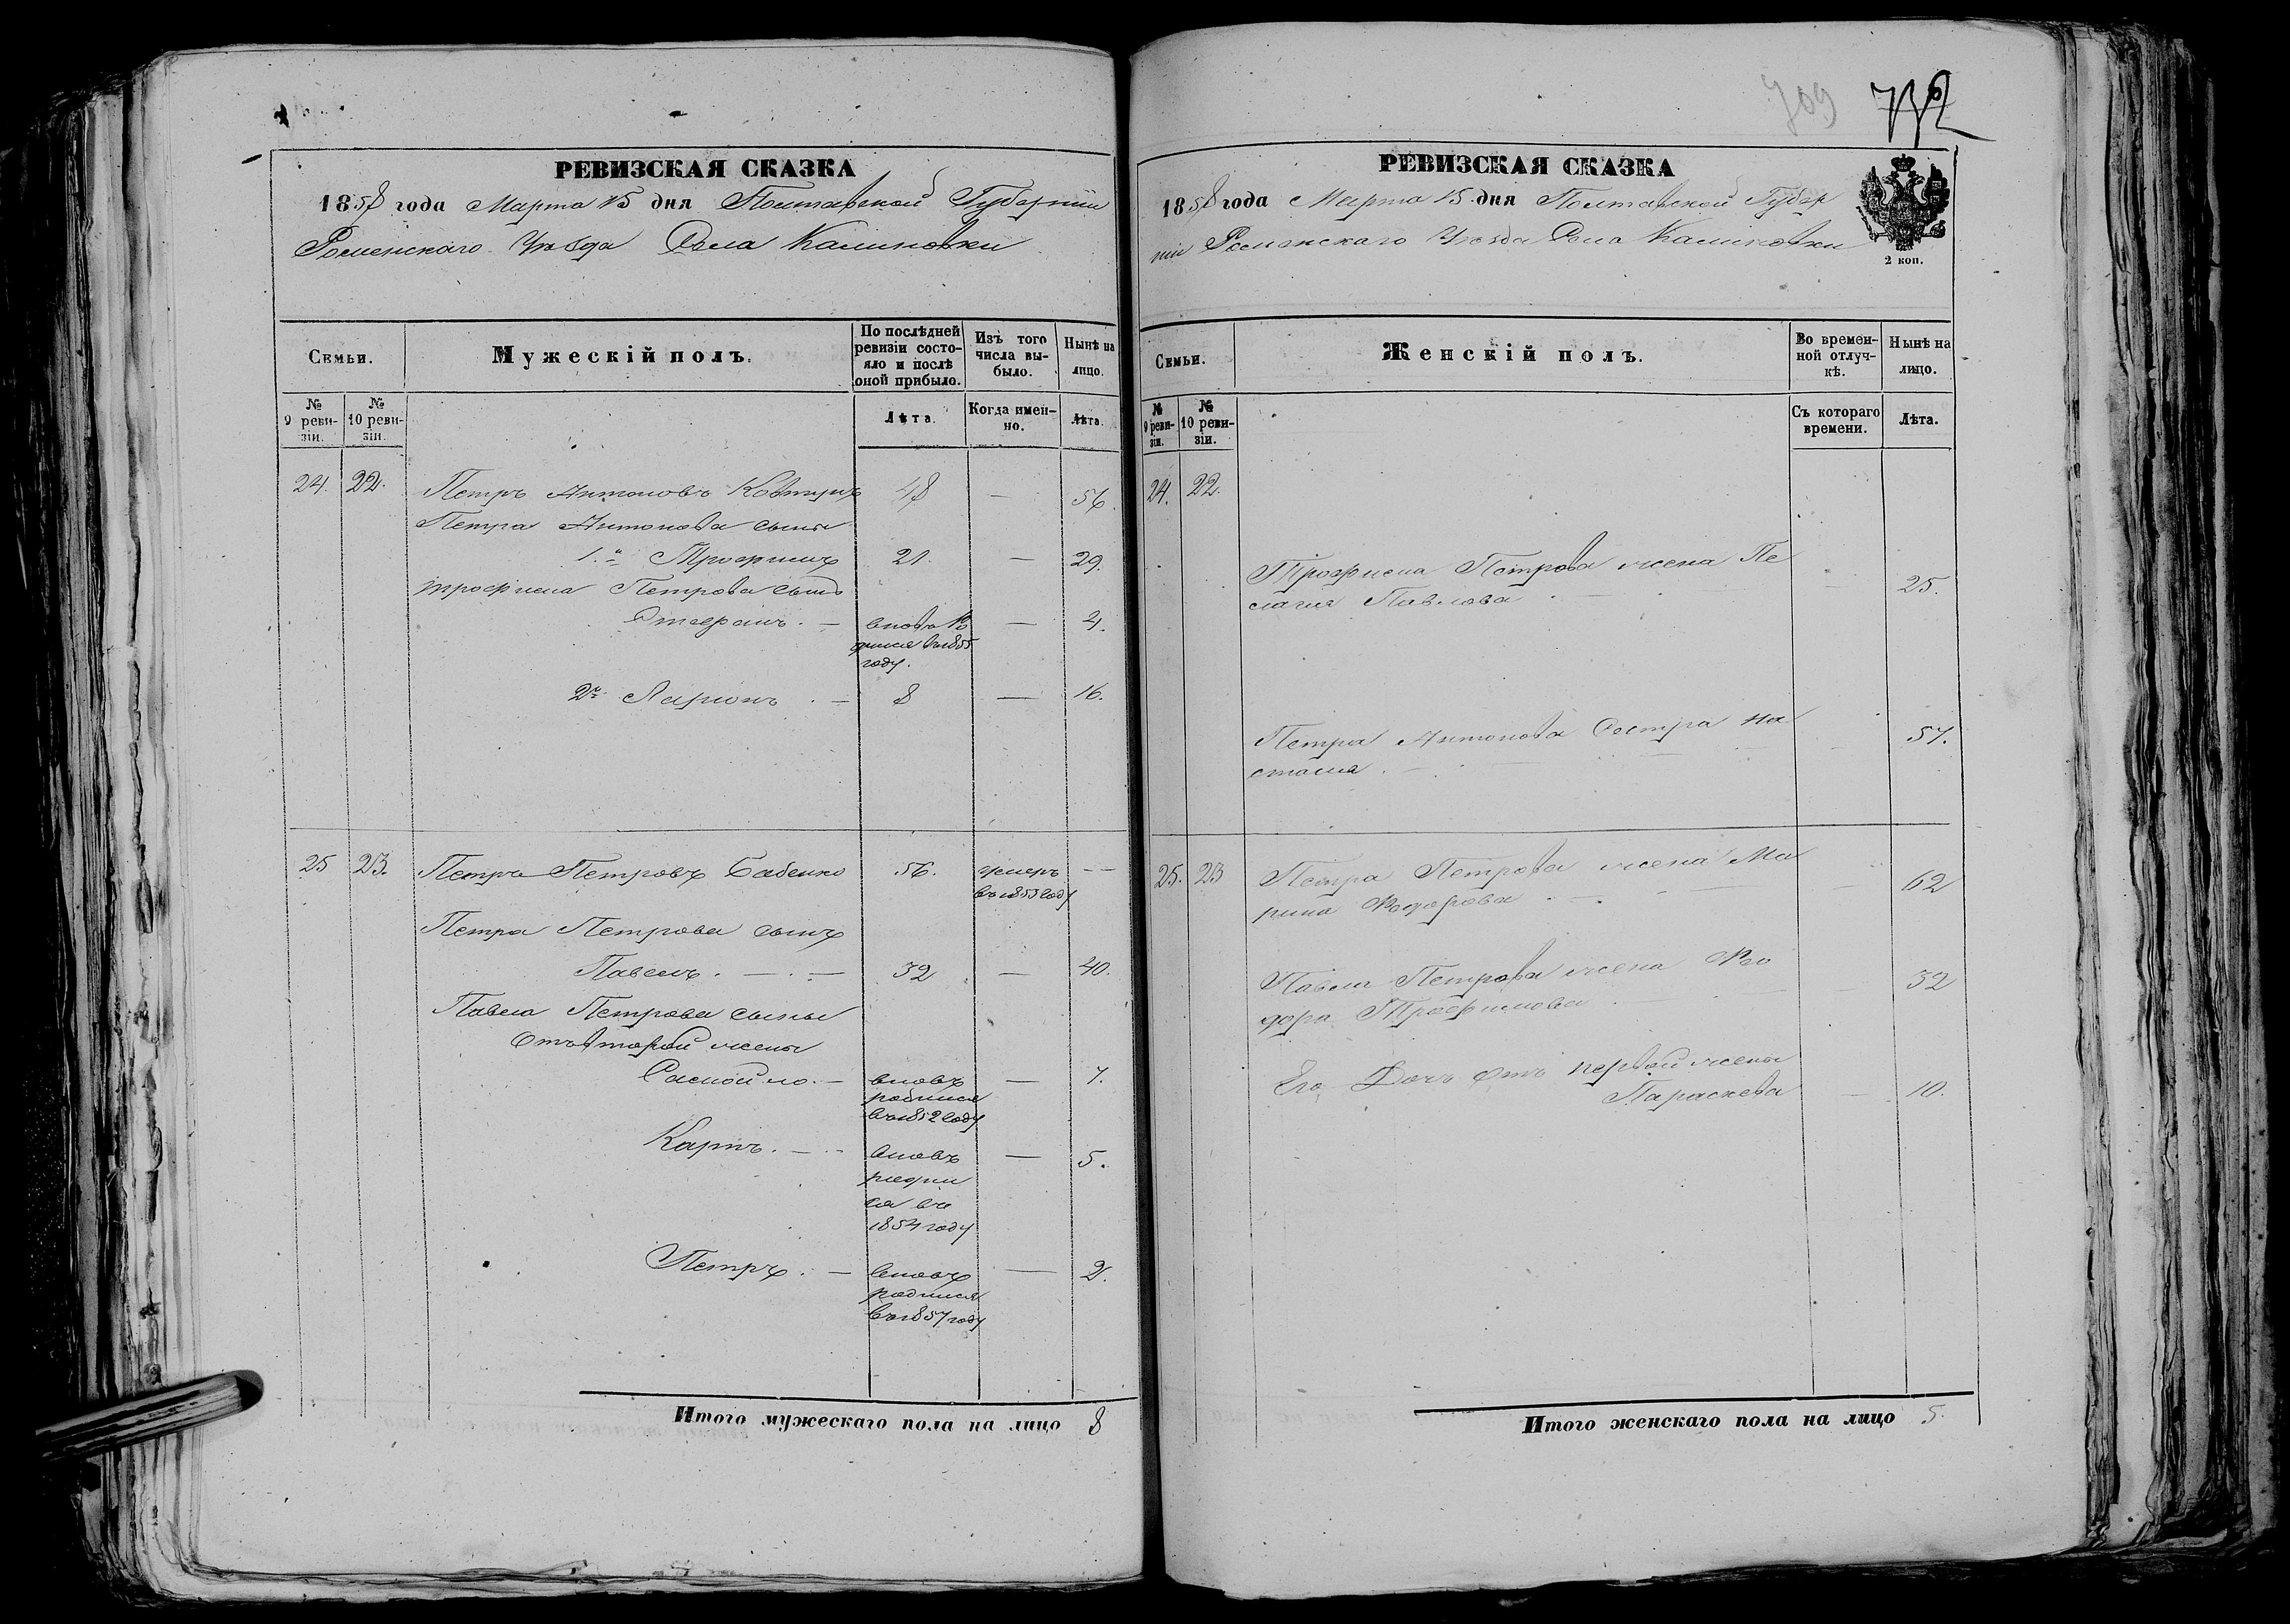 РЕВИЗСКАЯ СКАЗКА
1858 года Марта 15 дня Полтавской Губернии
Роменскаго Уѣзда Села Калиновки
Семьи.
Мужескій полъ.
По послѣдней ревизіи состояло и послѣ оной прибыло.
Изъ того числа выбыло.
Нынѣ на лицо.
№ 9 ревизіи.
№ 10 ревизіи.
Лѣта.
Когда именно.
Лѣта.
24. 22. Петръ Антоновъ Ковтунъ 48 — 56.
Петра Антонова сыны
1.й Трофимъ 21. — 29.
Трофима Петрова сынъ
вновь ро — 4.
дился въ 1855
году.
2й Ларіонъ . — 8 — 16.
25 23. Петръ Петровъ Бабенко 56. умеръ — —
въ 1853 году
Петра Петрова сынъ
Павелъ . — . — 32 — 40.
Павла Петрова сыны
Отъ второй жены
Самойло . — вновь — 7.
родился
въ 1852 году
Карпъ . — . вновь — 5.
роди
ся въ
1854 году
Петръ . — вновь — 2.
родился
въ 1857 году
Итого мужескаго пола на лицо 8
709
РЕВИЗСКАЯ СКАЗКА
1858 года Марта 15 дня Полтавской Губер
ніи Роменскаго Уѣзда Села Калиновки
2 коп.
Семьи.
Женскій полъ.
Во временной отлучкѣ.
Нынѣ на лицо.
№ 9 ревизіи.
№ 10 ревизіи.
Съ котораго времени.
Лѣта.
24. 22.
Трофима Петрова жена Пе
лагия Павлова . — — 25.
Петра Антонова Сестра На
стасия . — — 57.
25. 23 Петра Петрова жена Ма
рина Федорова . — — 62
Павла Петрова жена Фео
дора Трофимова . — — 32
Его Дочь отъ первой жены
Параскева — 10.
Итого женскаго пола на лицо 5.